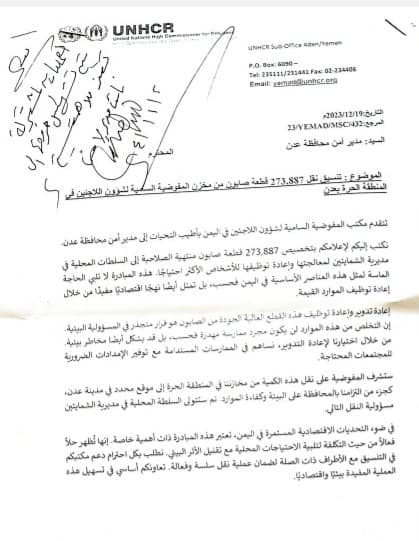 UNHCR
United Nations High Commissioner for Refugees
UNHCR Sub-Office Aden/Yemen
P.O. Box: 6090 –
Tel: 235111/231441 Fax: 02-234406
Email: yemad@unhcr.org
التاريخ:2023/12/19م
المرجع:23/YEMAD/MSC/432
السيد: مدير أمن محافظة عدن
المحترم
الموضوع : تنسيق نقل 273,887 قطعة صابون من مخزن المفوضية السامية لشؤون اللاجئين في
المنطقة الحرة بعدن
تتقدم مكتب المفوضية السامية لشؤون اللاجئين في اليمن بأطيب التحيات إلى مدير أمن محافظة عدن.
نكتب إليكم لإعلامكم بتخصيص 273,887 قطعة صابون منتهية الصلاحية إلى السلطات المحلية في
مديرية الشمايتين لمعالجتها وإعادة توظيفها للأشخاص الأكثر احتياجًا. هذه المبادرة لا تلبي الحاجة
الماسة لمثل هذه العناصر الأساسية في اليمن فحسب، بل تمثل أيضًا نهجًا اقتصاديًا مفيدًا من خلال
إعادة توظيف الموارد القيمة.
إعادة تدوير وإعادة توظيف هذه القطع العالية الجودة من الصابون هو قرار متجذر في المسؤولية البيئية.
إن التخلص من هذه الموارد لن يكون مجرد ممارسة مهدرة فحسب، بل قد يشكل أيضًا مخاطر بيئية.
من خلال اختيارنا لإعادة التدوير، نساهم في الممارسات المستدامة مع توفير الإمدادات الضرورية
للمجتمعات المحتاجة.
ستشرف المفوضية على نقل هذه الكمية من مخازننا في المنطقة الحرة إلى موقع محدد في مدينة عدن،
كجزء من التزامنا بالمحافظة على البيئة وكفاءة الموارد. ثم ستتولى السلطة المحلية في مديرية الشمايتين
مسؤولية النقل التالي.
في ضوء التحديات الاقتصادية المستمرة في اليمن، تعتبر هذه المبادرة ذات أهمية خاصة. إنها تُظهر حلاً
فعالاً من حيث التكلفة لتلبية الاحتياجات المحلية مع تقليل الأثر البيئي. نطلب بكل احترام دعم مكتبكم
في التنسيق مع الأطراف ذات الصلة لضمان عملية نقل سلسة وفعالة. تعاونكم أساسي في تسهيل هذه
العملية المفيدة بيئيًا واقتصاديًا.